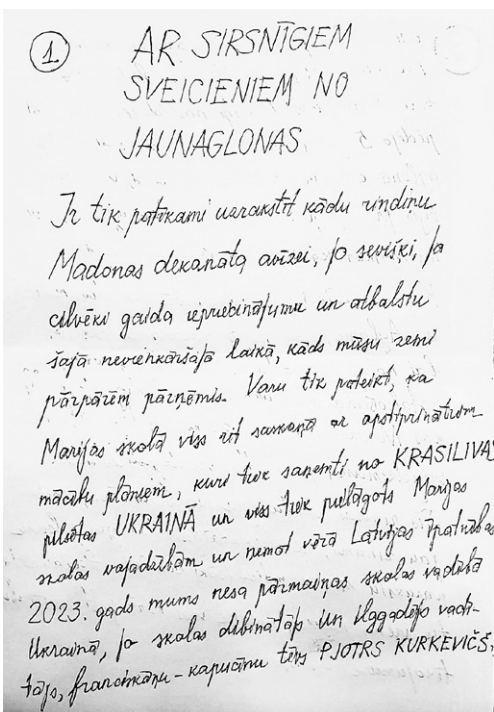 1.
AR SIRSNĪGIEM
SVEICIENIEM NO
JAUNAGLONAS
Ir tik patīkami uzrakstīt kādu rindiņu
Madonas dekanāta avīzei, jo sevišķi, ja
cilvēki gaida iepriecinājumu un atbalstu
šajā nevienkāršajā laikā, kāds mūsu zemi
pārņēmis. Varu tik pateikt, ka
Marijas skolā viss rit saskaņā ar apstiprinātiem
mācību plāniem, kuri tiek saņemti no KRASILIVAS
pilsētas UKRAINĀ un viss tiek pielāgots Marijas
skolas vajadzībām un ņemot vērā Latvijas īpatnības
2023. gads mums nesa pārmaiņas skolas vadībā
Ukrainā, jo skolas dibinātājs un ilggadējs vadī-
tājs, franciskāņu-kapucīnu tēvs PJOTRS KURKEVIČS,